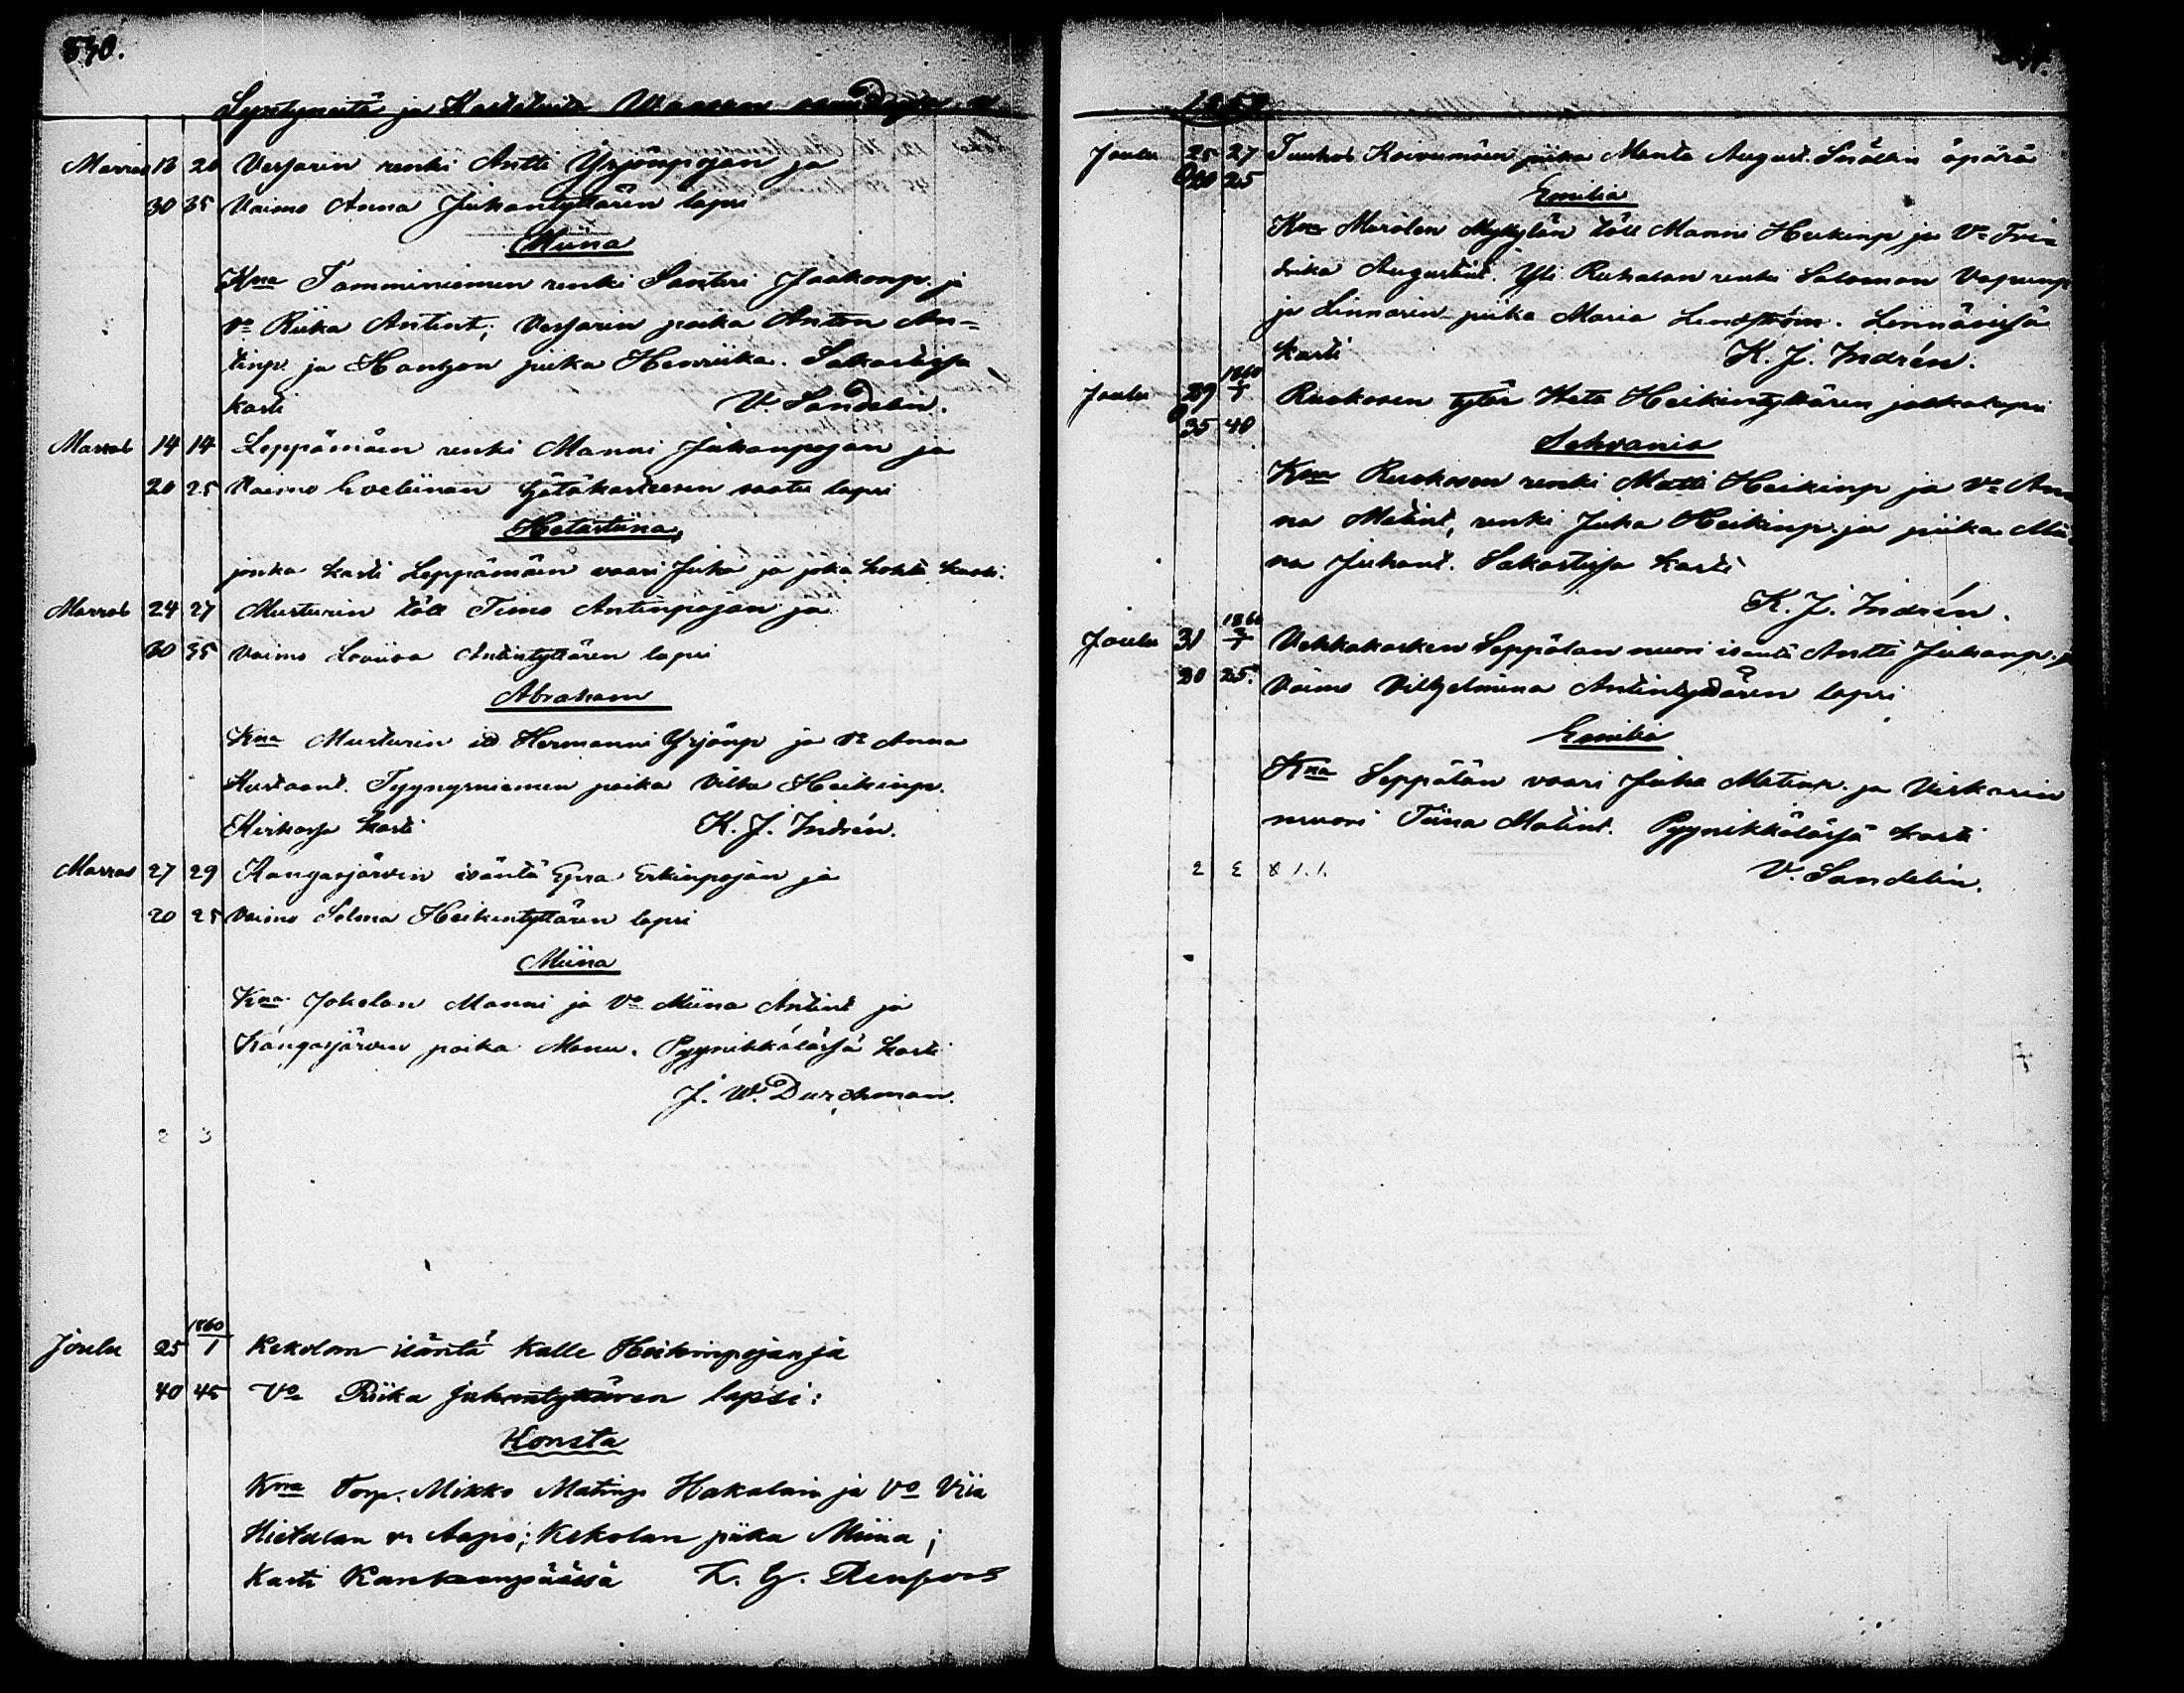 530.
Syntyneitä ja Kastetuita Wuonna
Marras 18 20 Verjarin renki Antti Yrjönpojan ja
30 35 Vaimo Anna Juhantyttären lapsi
Miina
Kna Tamminiemen renki Santeri Jaakonp. ja
Vo Riika Antint; Verjarin poika Anton An=
tinp. ja Hantjon piika Henriika. Sakastissa
kasti V. Sandelin.
Marras 14 14 Leppämäen renki Manni Juhanpojan ja
20 25 Vaimo Eveliinan hätäkasteesen saatu lapsi
Hetastiina,
jonka kasti Leppämäen vaari Juha ja joka kohta kuoli.
Marras 24 27 Musturin töll Timo Antinpojan ja
30 35 Vaimo Loviisa Antintyttären lapsi
Abraham
Kna Musturin is Hermanni Yrjönp ja Vo Anna
Kustaant. Tyynysniemen poika Vilha Heikinp.
Kirkossa kasti K. J. Indrén.
Marras 27 29 Kangasjärven isäntä Esra Erkinpojan ja
20 25 Vaimo Selma Heikintyttären lapsi
Miina
Kna Jokelan Manni ja Vo Miina Antint ja
Kangasjärven poika Manu. Pyynikkälässä kasti
J. W. Durchman.
2 3
1860
Joulu 25 1 Kekolan isäntä Kalle Heikinpojan ja
40 45 Vo Riika Juhontyttären lapsi:
Konsta
Kna Torp. Mikko Matinp Hakalain ja Vo Viia
Hietalan r. Aapo; Kekolan piika Miina;
Kasti Kankaanpäässä K. G. Renfors
Joulu 25 27 Koivumäen piika Manta August. Snällin äpärä
20 25
Emilia
Kna Marólan Myllylän töll Manni Heikinp ja Vo Fre=
drika Augustint. Yli Ruhalan renki Salomon
ja Linnarin piika Maria Lindström.
kasti K. J. Indrén.
1860
Joulu 29 1 Ruokosen tytär Heta Heikintyttären jalkalapsi
35 40
Sehvania
Kna Ruokosen renki Matti Heikinp ja Vo An
na Matint, renki Juha Heikinp. ja piika Mii
na Juhant. Sakastissa kasti
K. J. Indrén.
1860
Joulu 31 3/1 Vehkakosken Seppälan nuori isäntä Antti Juhanp. ja
20 25. Vaimo Vilhjelmina Antintyttären lapsi
Emilia
Kna Seppälän vaari Juha Matinp. ja Virkarin
muori Tiina Matint. Pyynikkälässä kasti
2 3 V. Sandelin.